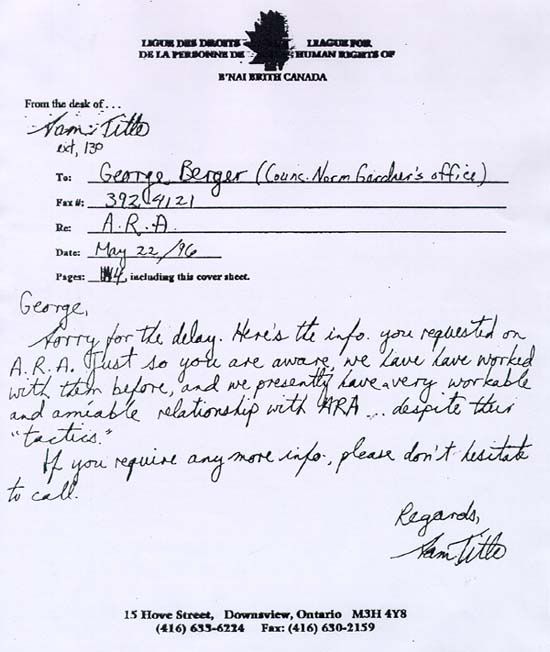 LIGUE DES DROITS LEAGUE FOR
DE LA PERSONNE DE HUMAN RIGHTS OF
B'NAI BRITH CANADA
From the desk of . . .
Sam Title
ext, 130
To: George Berger (Counc. Norm Gardner's office)
Fax #: 392 4121
Re: A.R.A.
Date: May 22/96
Pages: 4, including this cover sheet.
George,
Sorry for the delay. Here's the info. you requested on
A.R.A. Just so you are aware, we have have worked
with them before, and we presently have a very workable
and amiable relationship with ARA ... despite their
"tactics."
If you require any more info., please don't hesitate
to call.
Regards,
Sam Title
15 Hove Street, Downsview, Ontario M3H 4Y8
(416) 633-6224 Fax: (416) 630-2159